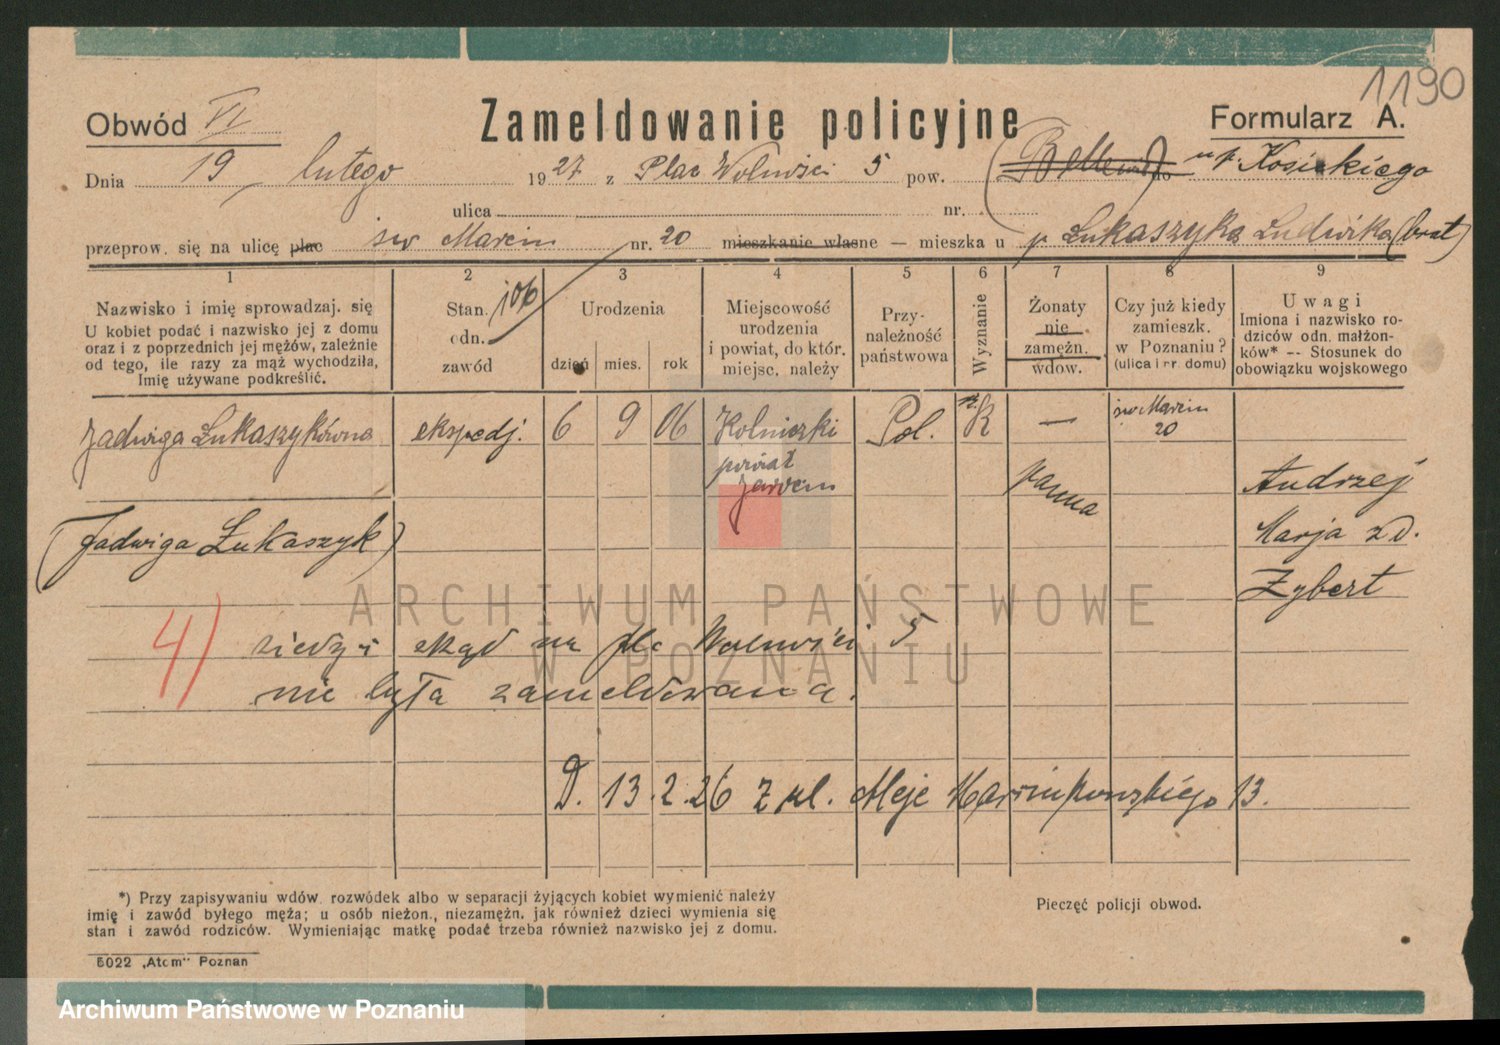 1190
Obwód VI Zameldowanie policyjne Formularz A.
Dnia 19 lutego 1927 z Plac Wolności 5 pow. do u p. Kosickiego
ulica nr.
przeprow. się na ulicę plac św Marcin nr. 20 mieszkanie własne — mieszka u p Łukaszyka Ludwika (brat)
1 2 3 4 5 6 7 8 9
Nazwisko i imię sprowadzaj. się
U kobiet podać i nazwisko jej z domu
oraz i z poprzednich jej mężów, zależnie
od tego, ile razy za mąż wychodziła,
Imię używane podkreślić.
Stan.
odn.
zawód
106
Urodzenia
dzień mies. rok
Miejscowość
urodzenia
i powiat, do któr.
miejsc. należy
Przy-
należność
państwowa
Wyznanie
Żonaty
nie
zamężn.
wdow.
Czy już kiedy
zamieszk.
w Poznaniu?
(ulica i nr. domu)
Uwagi
Imiona i nazwisko ro-
dziców odn. małżon-
ków* -- Stosunek do
obowiązku wojskowego
Jadwiga Łukaszykówna ekspedj. 6 9 06 Kolniczki Pol. r. K — św Marcin
20
powiat
Jarocin
panna
Andrzej
Marja z D.
Zybert
(Jadwiga Łukaszyk)
4)
nie była zameldowana.
D. 13.2.26 z pl. Aleje Marcinkowskiego 13.
*) Przy zapisywaniu wdów, rozwódek albo w separacji żyjących kobiet wymienić należy
imię i zawód byłego męża; u osób nieżon., niezamężn. jak również dzieci wymienia się
stan i zawód rodziców. Wymieniając matkę podać trzeba również nazwisko jej z domu.
Pieczęć policji obwod.
5022 „Atom" Poznan
ARCHIWUM PAŃSTWOWE
W POZNANIU
Archiwum Państwowe w Poznaniu